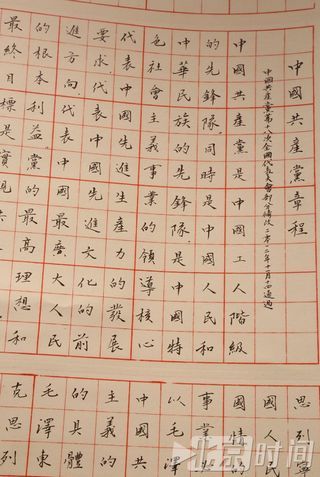 中國共產黨章程
中國共產黨第十八次全國代表大會部分修改
中國共產黨是中國工人階級
的先鋒隊同時是中國人民和
中華民族的先鋒隊是中國特
色社會主義事業的領導核心
代表中國先進生產力的發展
要求代表中國先進文化的前
進方向代表中國最廣大人民
的根本利益黨的最高理想和
最終目標是實
思列寧
國人民
國情的
事業
以毛澤
中國共
主義的
的具體
毛澤東
克思列
北京时间